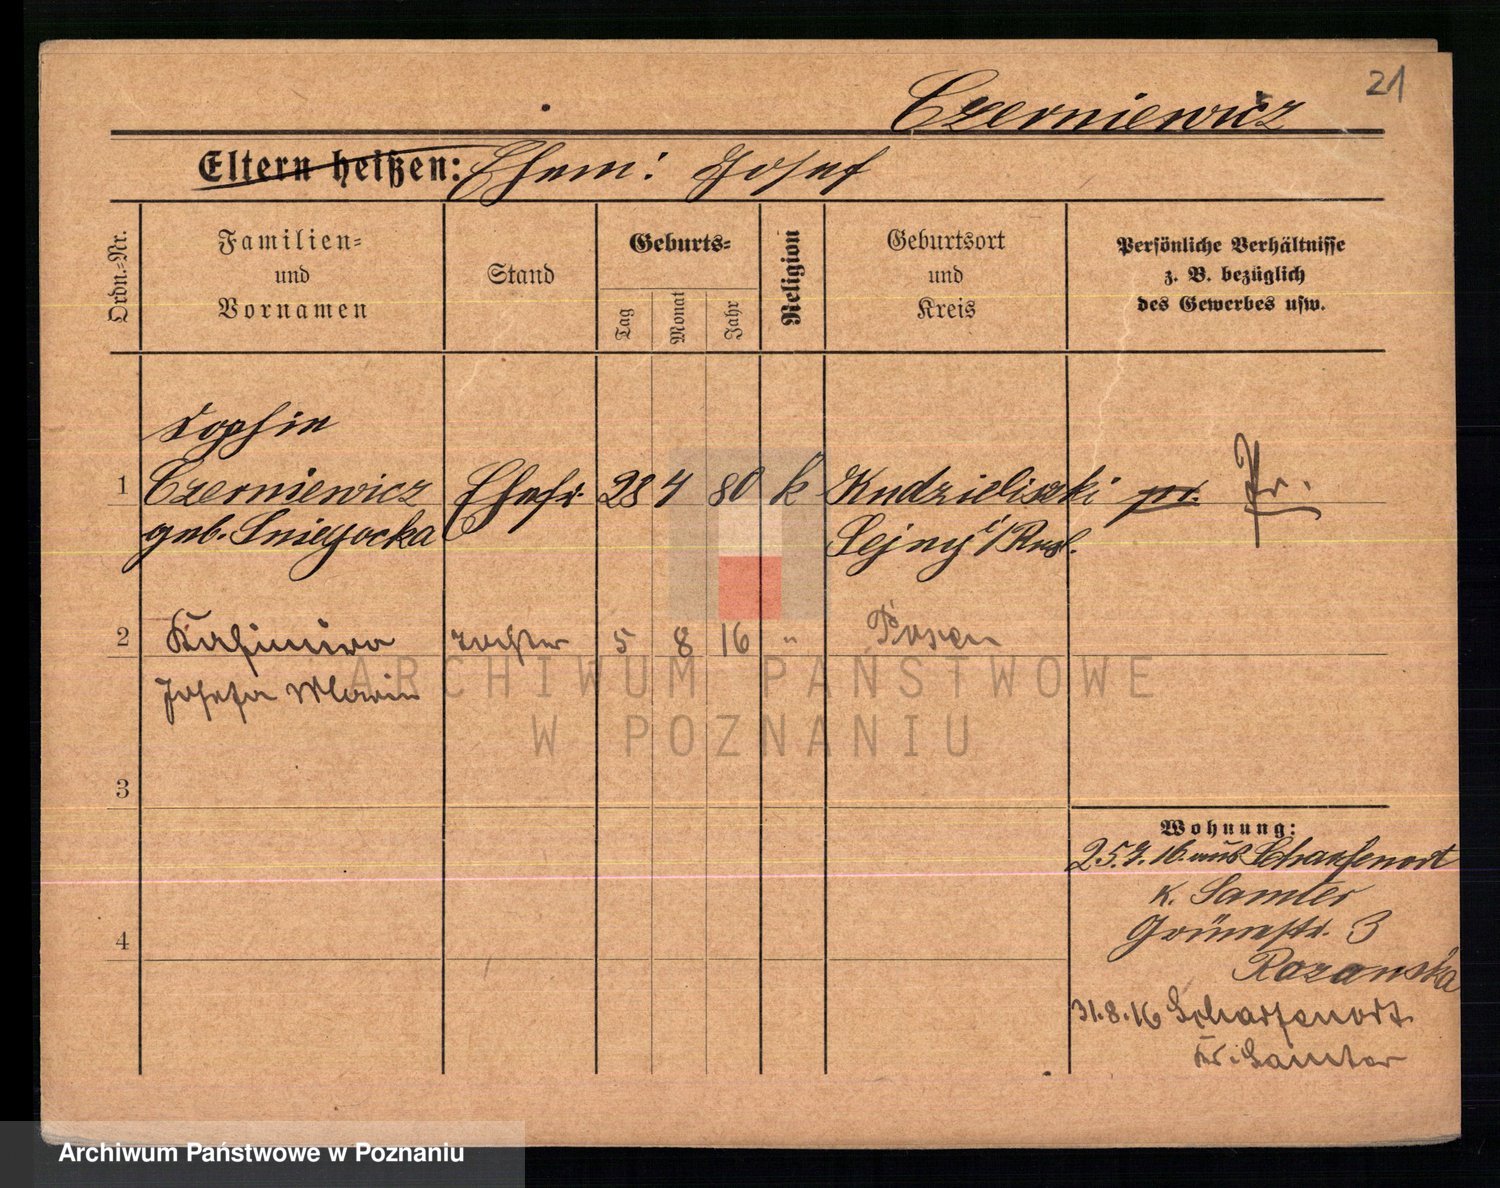 21
Czerniewicz
Eltern heißen: Ehem: Josef
Ordn.-Nr.
Familien- und Vornamen
Stand
Geburts-
Tag
Monat
Jahr
Religion
Geburtsort und Kreis
Persönliche Verhältnisse
z. B. bezüglich
des Gewerbes usw.
Sophie
1 Czerniewicz Ehefr. 28 4 80 k Kudzieliszki pr. Pr.
geb. Sniegocka Sejny i/Russl.
2 Kasimira Tochter 5 8 16 " Posen
Josefa Marie
3
4
Wohnung:
25.7.16. aus Scharfenort
K. Samter
Grünestr. 3
Rozanska
31.8.16 Scharfenort
Kr. Samter
ARCHIWUM PAŃSTWOWE
W POZNANIU
Archiwum Państwowe w Poznaniu